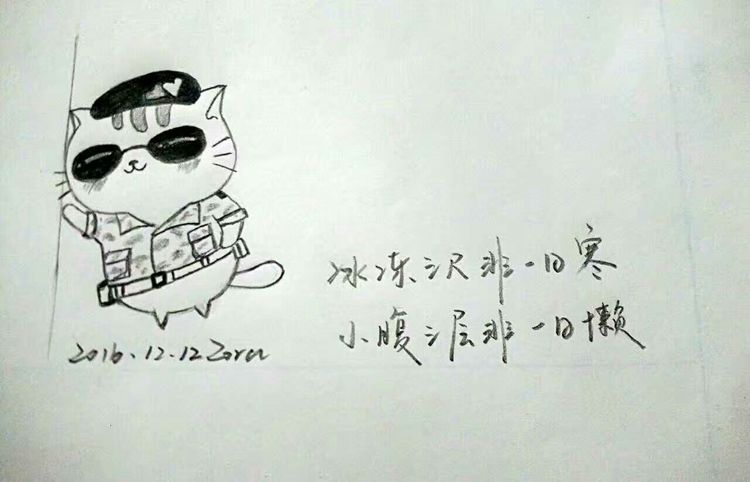 冰冻三尺非一日寒
小腹三层非一日懒
2016.12.12